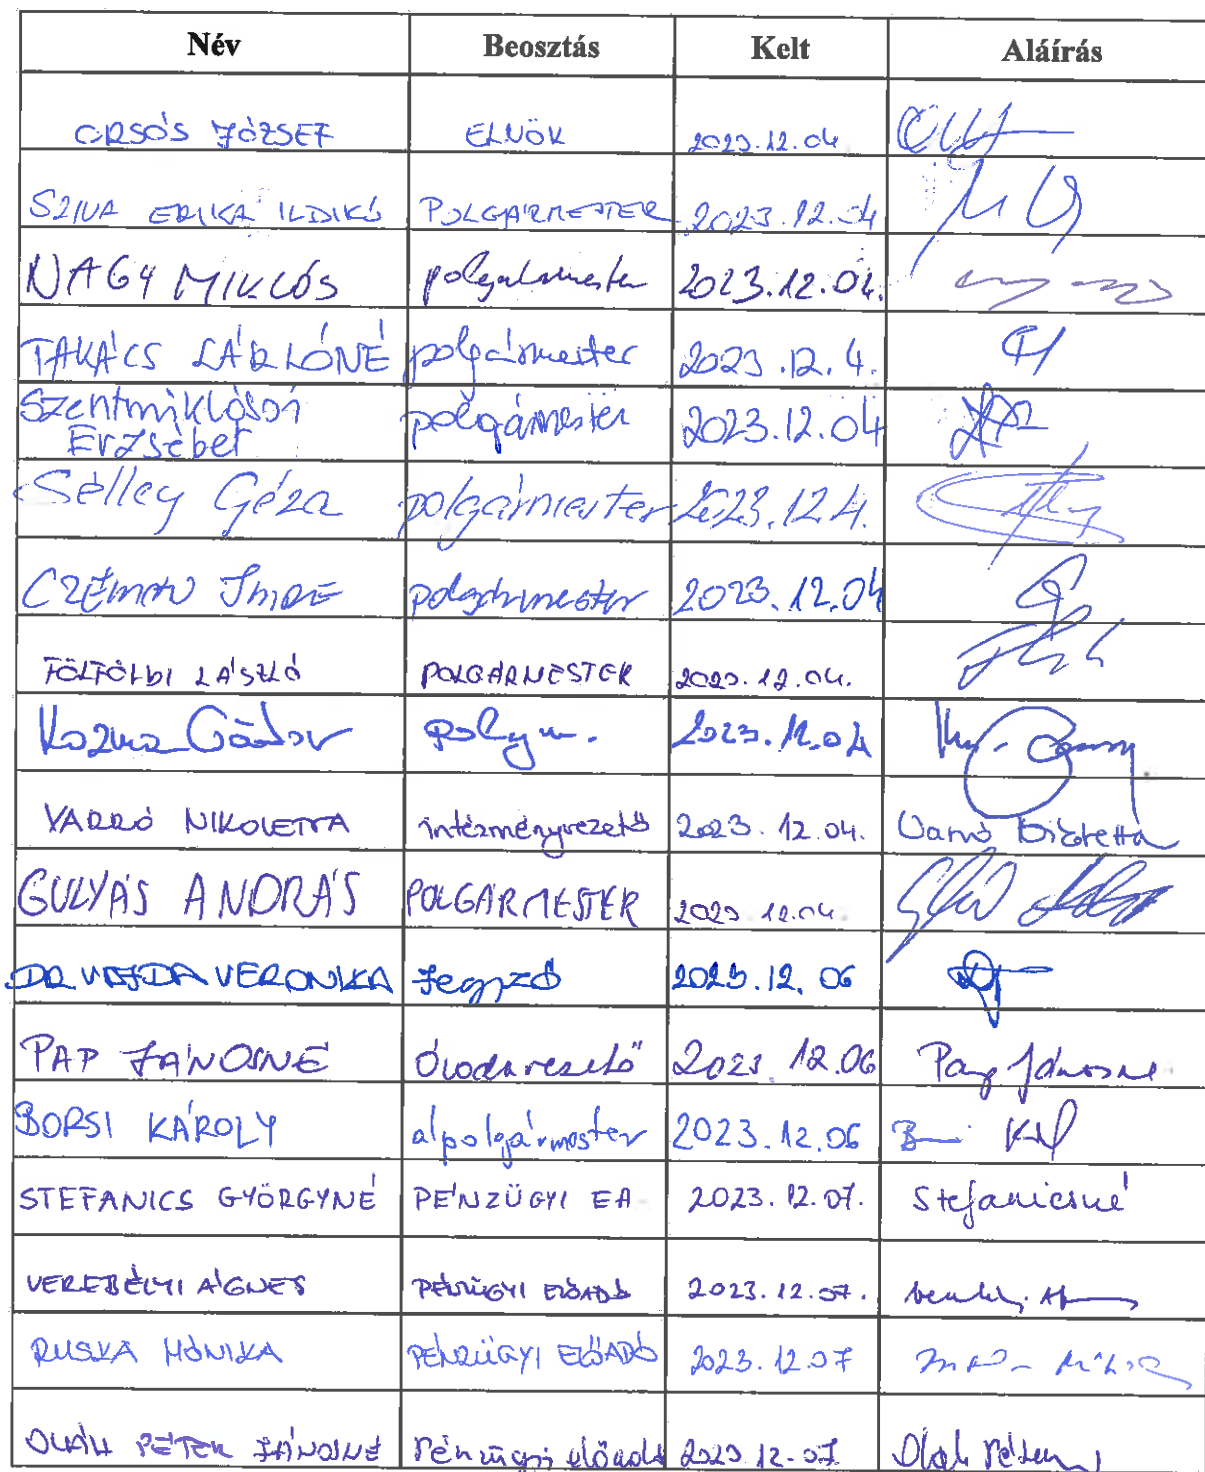 Név Beosztás Kelt Aláírás
ORSÓS JÓZSEF ELNÖK 2023.12.04
SZIVA ERIKA ILDIKÓ POLGÁRMESTER 2023.12.04
NAGY MIKLÓS polgármester 2023.12.04.
TAKÁCS LÁSZLÓNÉ polgármester 2023.12.4.
Szentmiklósi polgármester 2023.12.04
Erzsébet
Sélley Géza polgármester 2023.12.4.
CZÉMÁN IMRE polgármester 2023.12.04
FÖLFÖLDI LÁSZLÓ POLGÁRMESTER 2023.12.04.
Kozma Gábor polgm. 2023.12.04
VARRÓ NIKOLETTA intézményvezető 2023.12.04. Varró Nikoletta
GULYÁS ANDRÁS POLGÁRMESTER 2023.12.04.
DR VAJDA VERONIKA Jegyző 2023.12.06
PAP JÁNOSNÉ Óvodavezető 2023.12.06 Pap Jánosné
BORSI KÁROLY alpolgármester 2023.12.06
STEFANICS GYÖRGYNÉ PÉNZÜGYI EA 2023.12.07. Stefanicsné
VEREBÉLYI ÁGNES PÉNZÜGYI ELŐADÓ 2023.12.07.
RUSKA MÓNIKA PÉNZÜGYI ELŐADÓ 2023.12.07
OLÁH PÉTER JÁNOSNÉ Pénzügyi előadó 2023.12.07. Oláh Péter